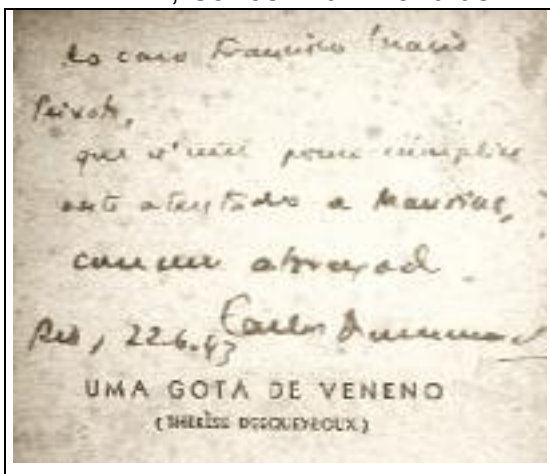 Ao caro Francisco Inacio
Peixoto,
que é um pouco cúmplice
neste atentado a Mauriac,
com um abraço de
Carlos Drummond
Rio, 22.6.43
UMA GOTA DE VENENO
(THERÈSE DESQUEYROUX)